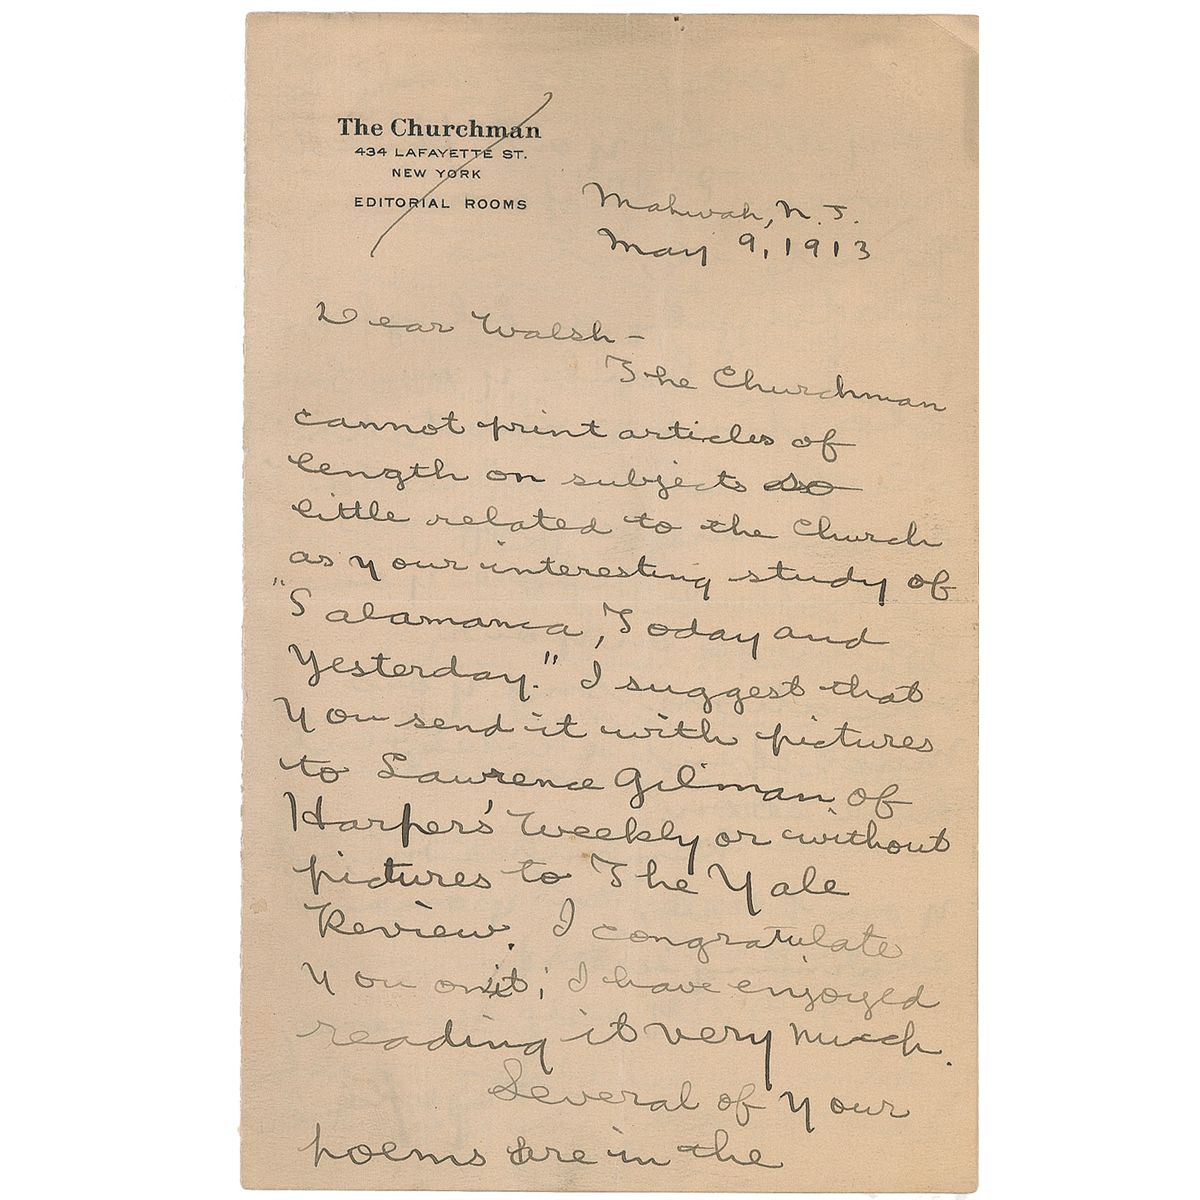 The Churchman
434 LAFAYETTE ST.
NEW YORK
EDITORIAL ROOMS
Mahwah, N. J.
May 9, 1913
Dear Walsh –
The Churchman
cannot print articles of
length on subjects so
little related to the Church
as your interesting study of
"Salamanca, Today and
Yesterday." I suggest that
you send it with pictures
to Lawrence Gilman of
Harper's Weekly or without
pictures to The Yale
Review. I congratulate
you on it; I have enjoyed
reading it very much.
Several of your
poems are in the